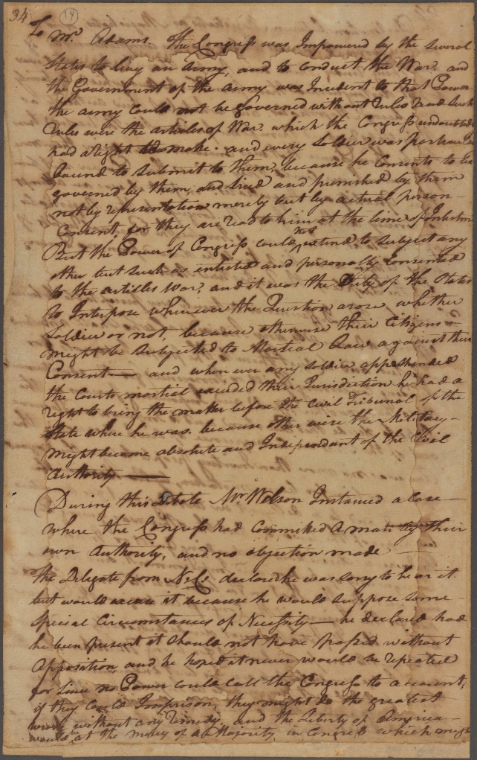 34 (14)
To Mr. Adams. The Congress was Impowered by the several
States to levy an Army, and to conduct the War, and
the Government of the Army was Incident to that Power
the army could not be governed without Rules and such
Rules were the articles of War which the Congress undoubtedly
had a right to make. and every Soldier was
bound to submit to them, because he Consents to be
governed by them, and tried and punished by them
not by representation merely but by actual person
Consent, for they are read to him at the time of
But the Power of Congress could not extend to subject any
other but such as enlisted and personally Consented
to the articles War, and it was the Duty of the States
to Interpose whenever the Question arose, whether
Soldier or not, because otherwise their Citizens
might be Subjected to Martial Law against their
Consent — and when ever any Soldier apprehended
the Courts martial exceeded their Jurisdiction he had a
right to bring the matter before the Civil Tribunal of the
State where he was, because other wise the Military
might become absolute and Independant of the Civil
Authority —
During this Debate Mr Wilson Instanced a Case
where the Congress had Committed a man by their
own Authority, and no objection made
The Delegate from N. C. declared he was sorry to hear it
but would excuse it because he would suppose some
Special Circumstances of Necessity — he declared had
he been present it should not have passed without
Opposition and he hoped it never would be repeated
for since no Power could call the Congress to account,
if they could Imprison, they might do the greatest
without any Remedy, and the Liberty of America
would at the mercy of a Majority in Congress which might